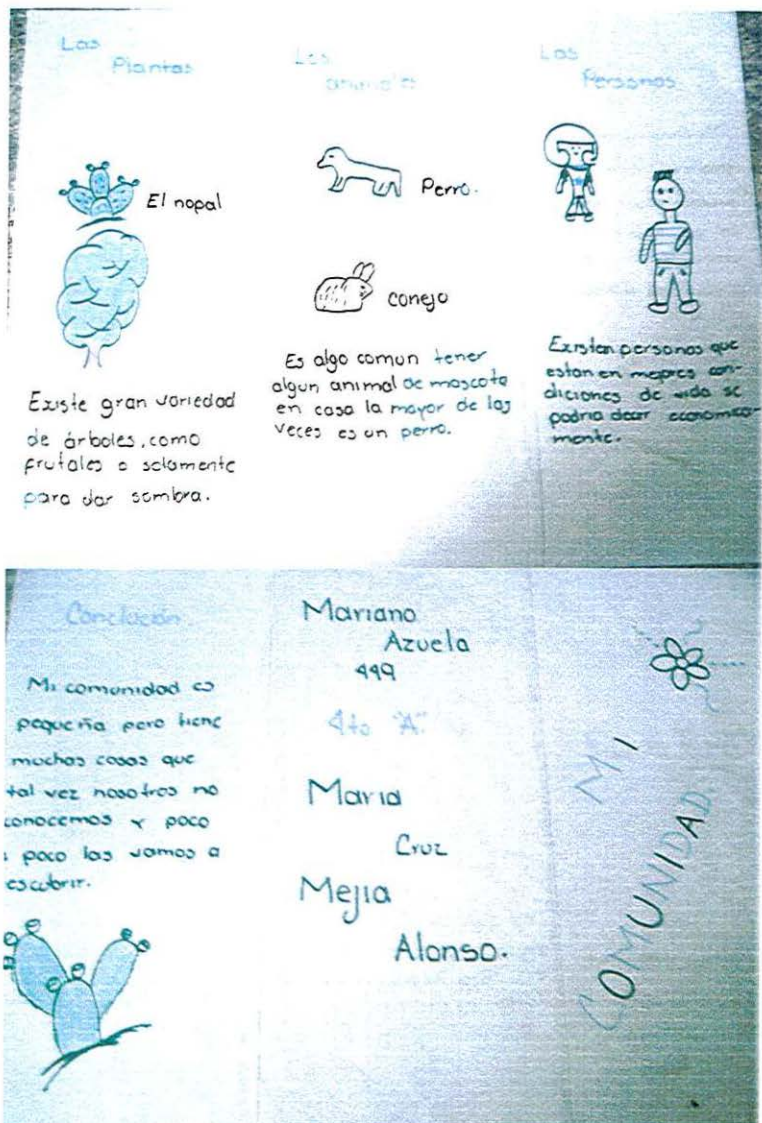 Las
Plantas
El nopal
Existe gran variedad
de árboles, como
frutales o solamente
para dar sombra.
Los
animales
Perro.
conejo
Es algo comun tener
algun animal de mascota
en casa la mayor de las
veces es un perro.
Las
Personas
Existen personas que
estan en mejores con-
diciones de vida se
podria decir economica-
mente.
Conclución.
Mi comunidad es
pequeña pero tiene
muchas cosas que
tal vez nosotros no
conocemos y poco
poco las vamos a
escubrir.
Mariano
Azuela
449
4to "A".
Maria
Cruz
Mejia
Alonso.
MI
COMUNIDAD